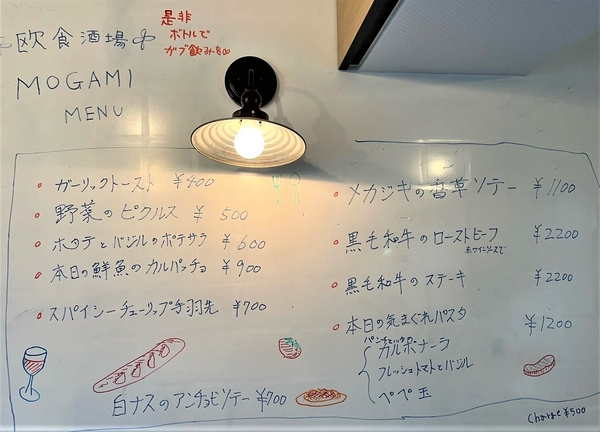 欧食酒場
是非
ボトルで
ガブ飲みを∞
MOGAMI
MENU
ガーリックトースト ¥400
野菜のピクルス ¥500
ホタテとバジルのポテサラ ¥600
本日の鮮魚のカルパッチョ ¥900
スパイシーチューリップ手羽先 ¥700
白ナスのアンチョビソテー ¥700
メカジキの香草ソテー ¥1100
黒毛和牛のローストビーフ ¥2200
赤ワインソースで
黒毛和牛のステーキ ¥2200
本日の気まぐれパスタ ¥1200
パンチェッタ
カルボナーラ
フレッシュトマトとバジル
ペペ玉
Charge ¥500